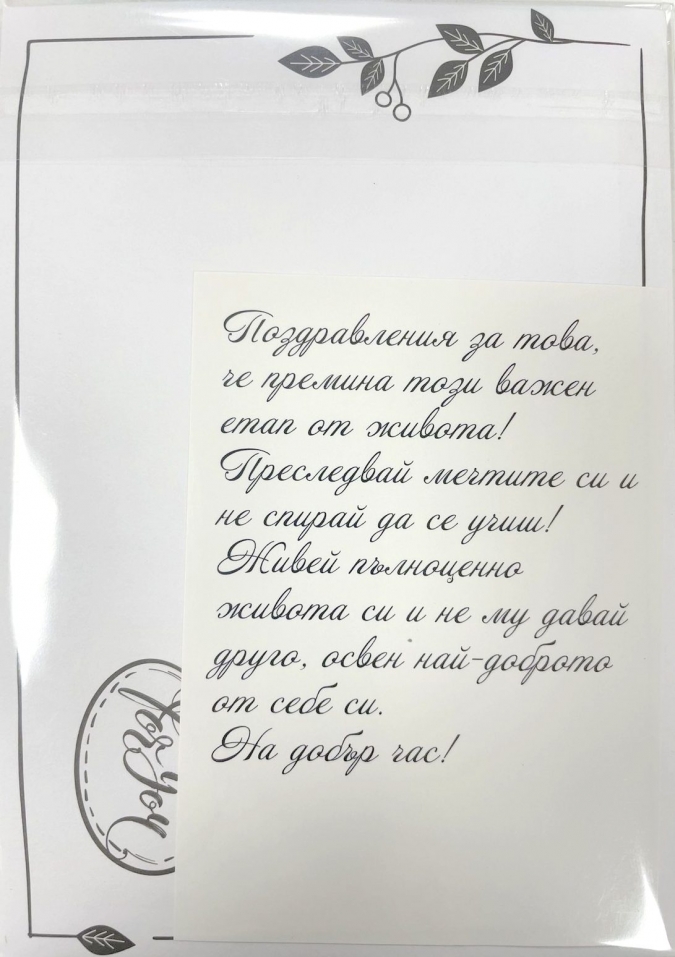 Поздравления за това,
че премина този важен
етап от живота!
Преследвай мечтите си и
не спирай да се учиш!
Живей пълноценно
живота си и не му давай
друго, освен най-доброто
от себе си.
На добър час!
For You